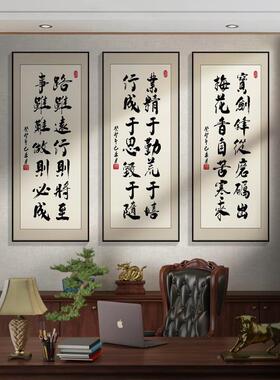 寶劍鋒從磨礪出
梅花香自苦寒來
業精于勤荒于嬉
行成于思毀于隨
路雖遠行則將至
事雖難做則必成